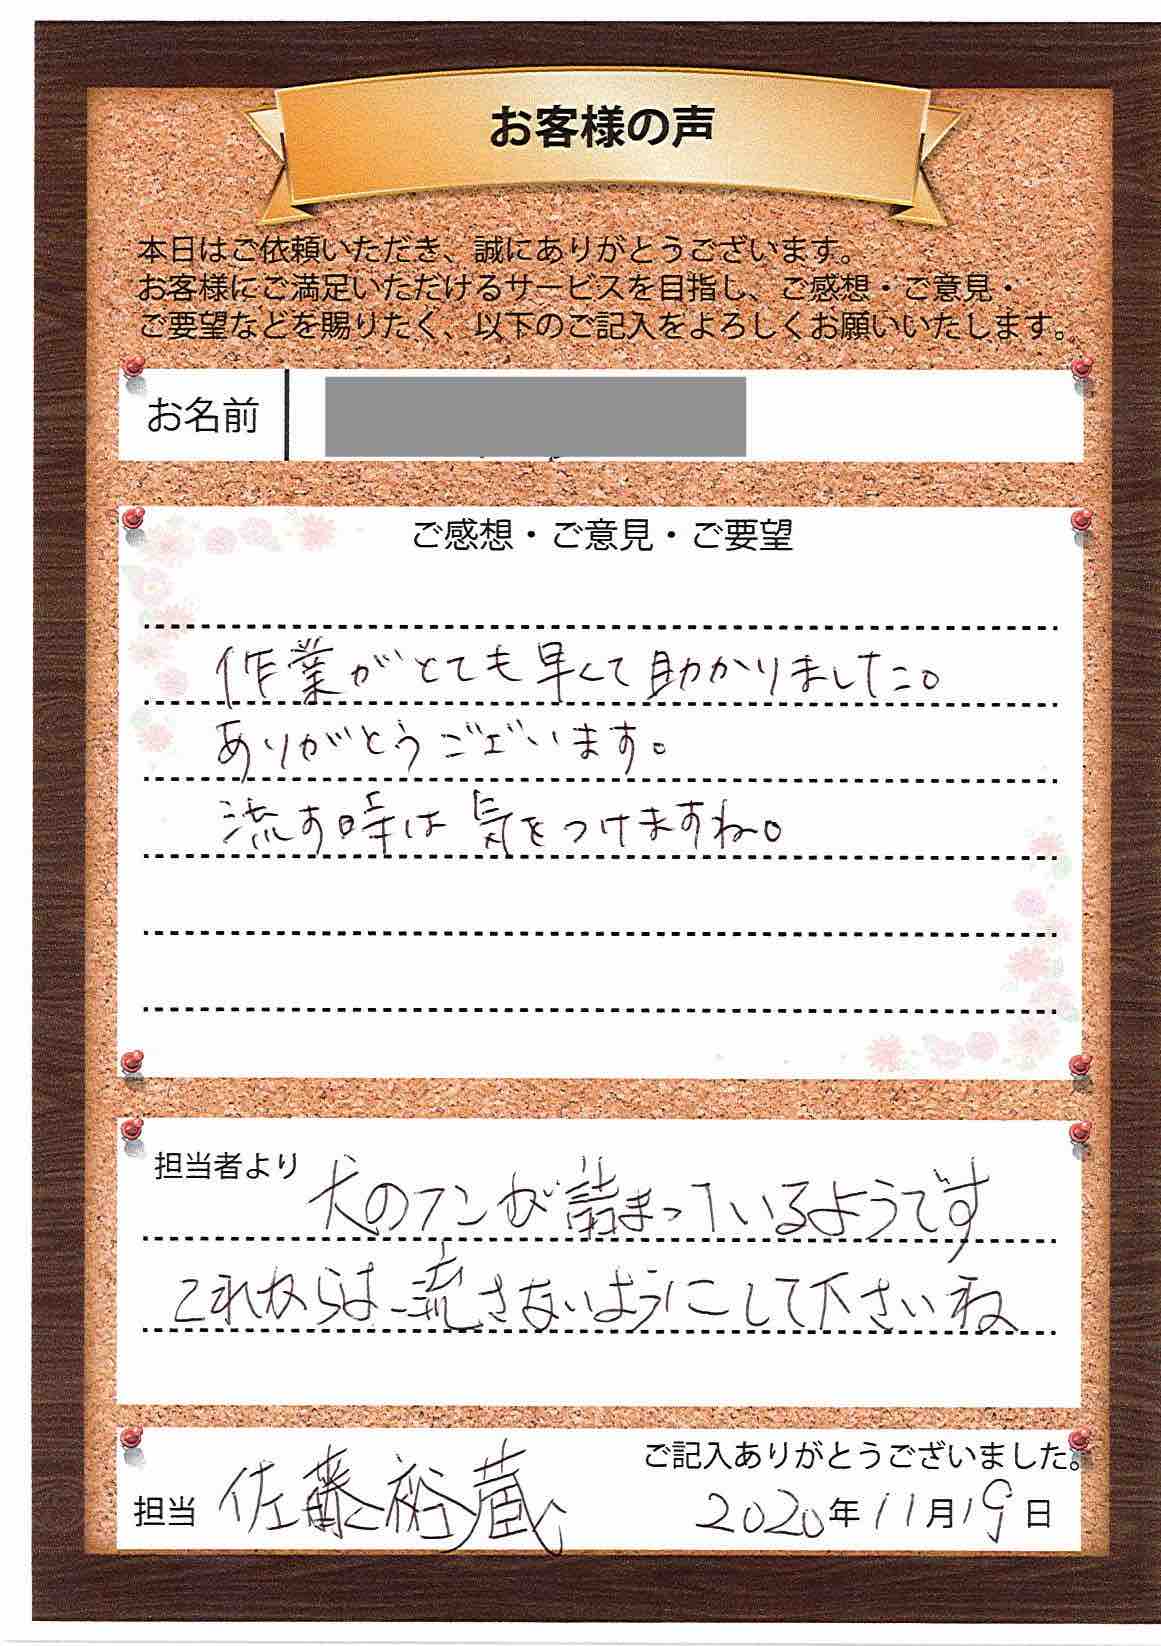 お客様の声
本日はご依頼いただき、誠にありがとうございます。
お客様にご満足いただけるサービスを目指し、ご感想・ご意見・
ご要望などを賜りたく、以下のご記入をよろしくお願いいたします。
お名前
ご感想・ご意見・ご要望
作業がとても早くて助かりました。
ありがとうございます。
流す時は気をつけますね。
担当者より
犬のフンが詰まっているようです
これからは流さないようにして下さいね
ご記入ありがとうございました。
担当 佐藤裕蔵
2020年11月19日